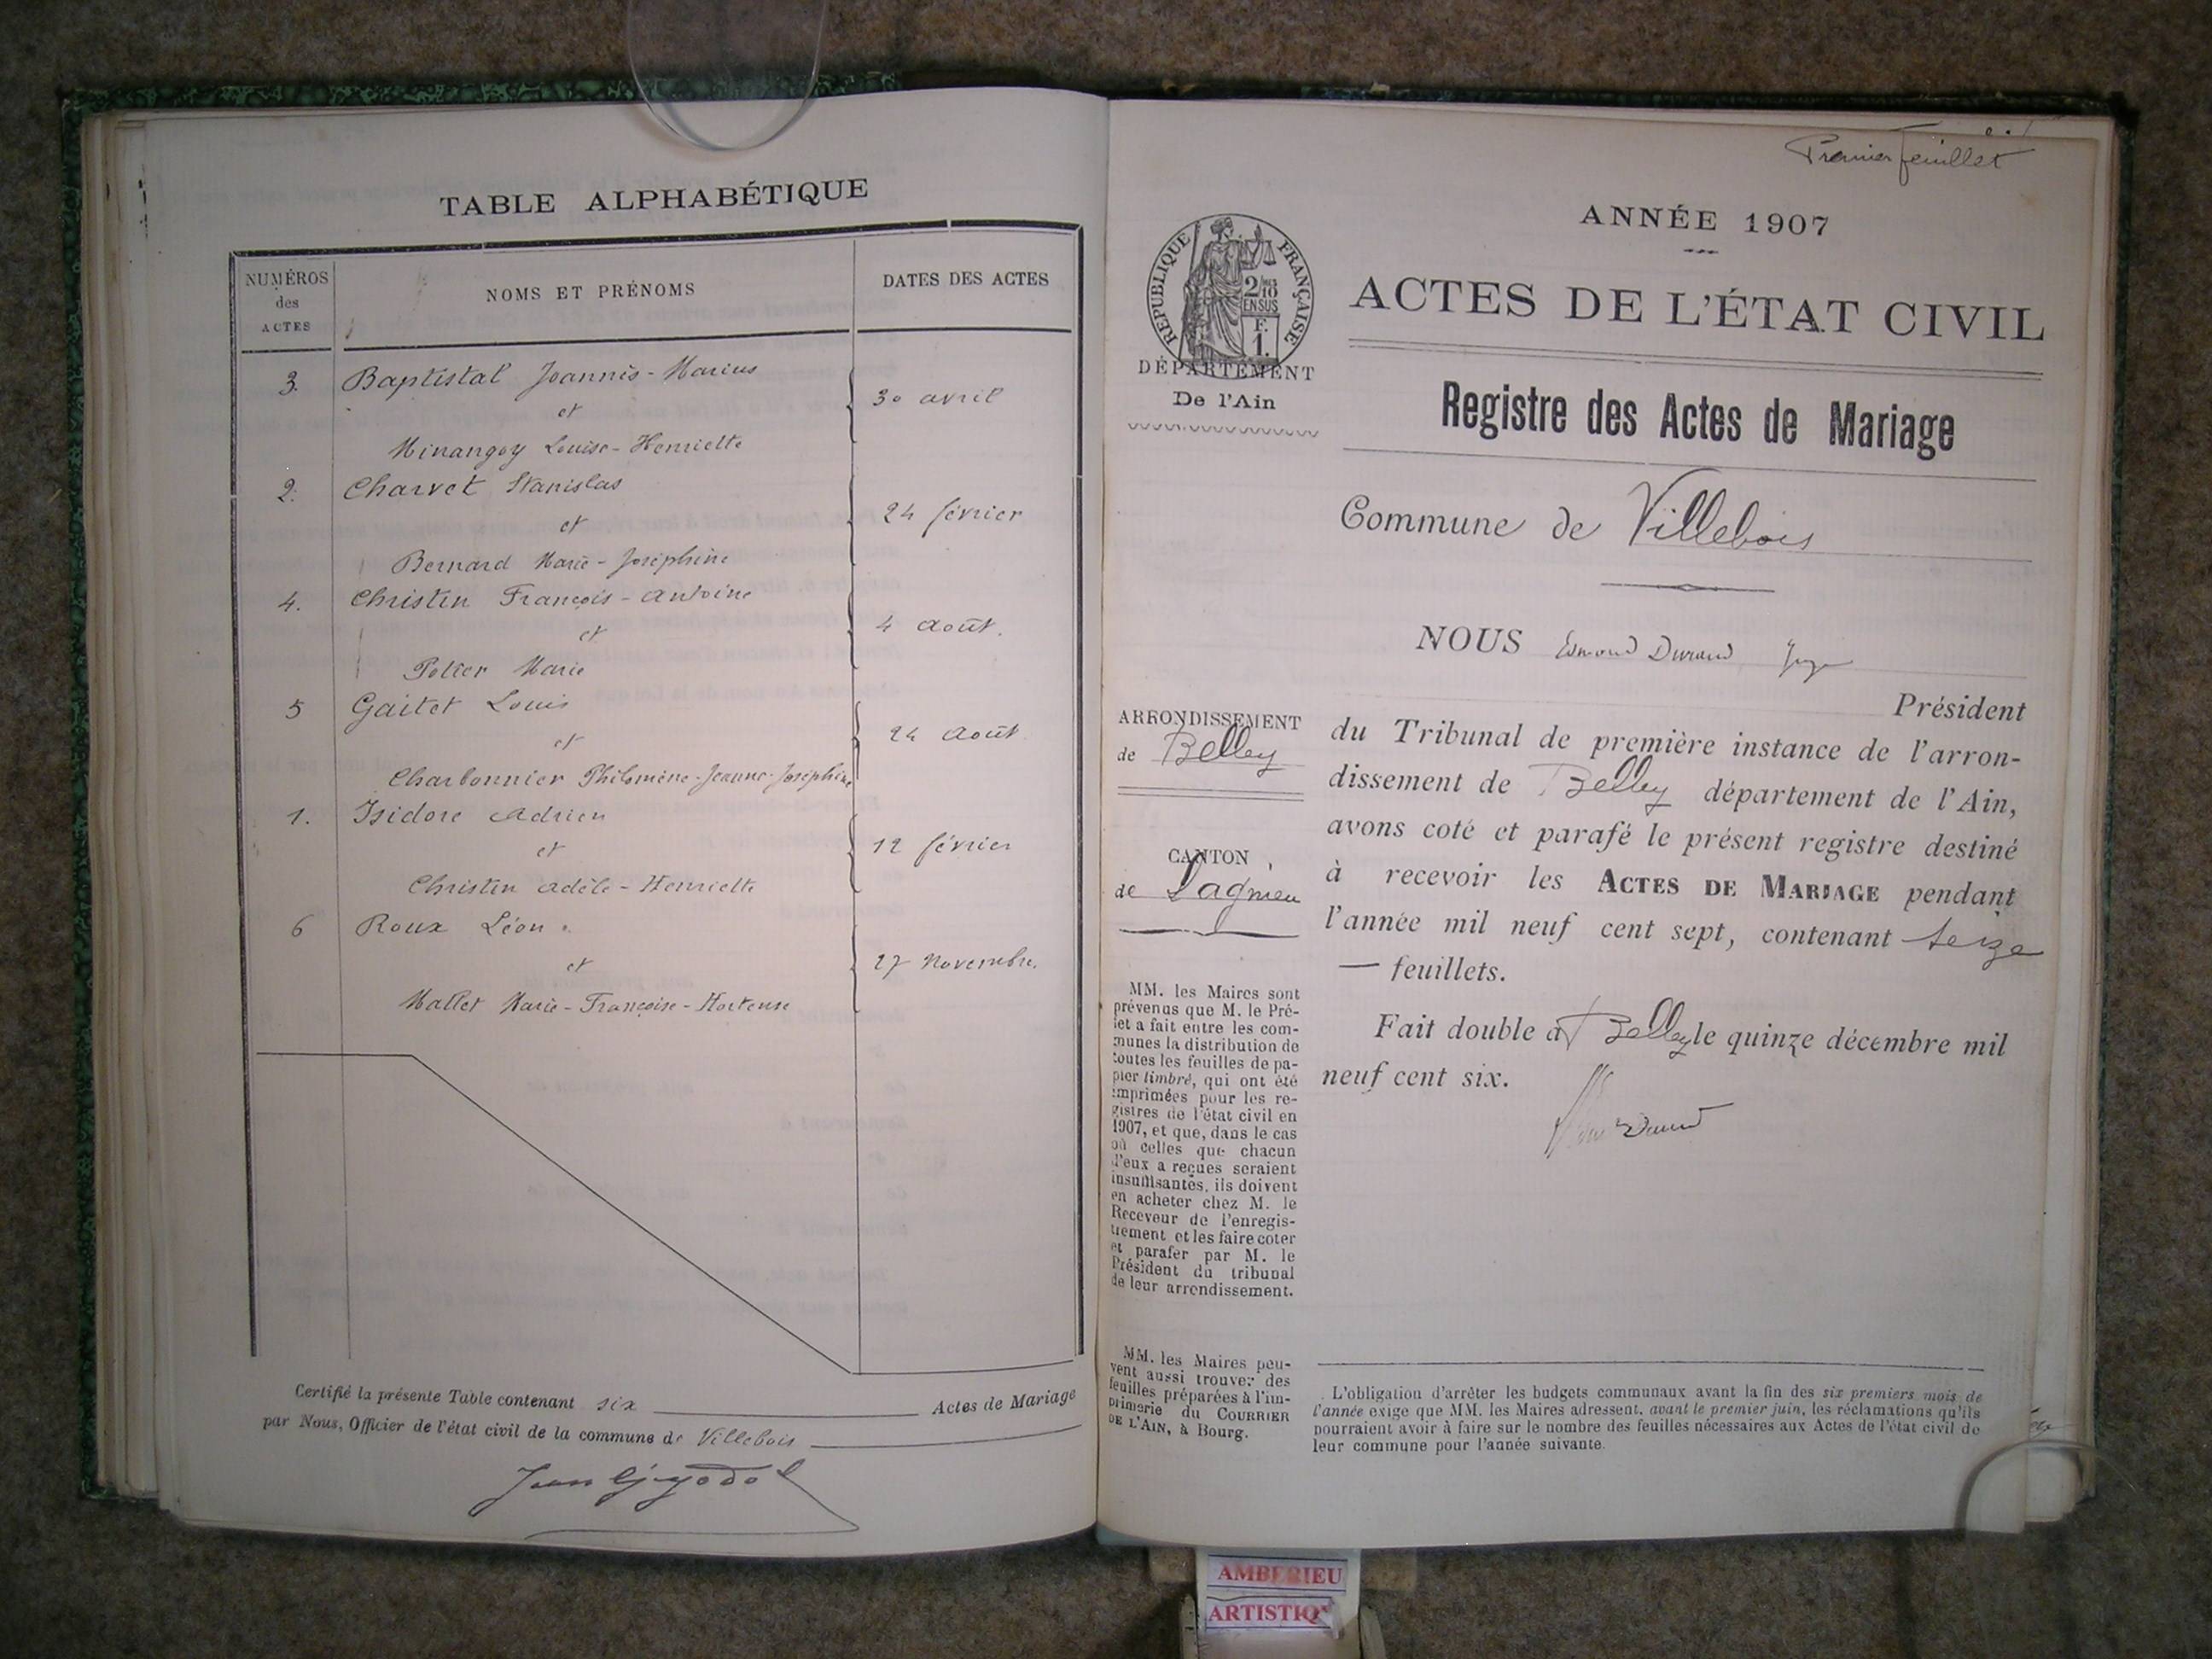 TABLE ALPHABÉTIQUE
NUMÉROS des ACTES
NOMS ET PRÉNOMS
DATES DES ACTES
3. Baptistal Joannès-Marius
et
30 avril
Minangoy Louise-Henriette
2. Charvet Stanislas
et
24 février
Bernard Marie-Joséphine
4. Christin François-Antoine
et
4 août.
Potier Marie
5 Gaitet Louis
et
24 août
Charbonnier Philomène-Jeanne-Joséphine
1. Isidore Adrien
et
12 février
Christin Adèle-Henriette
6 Roux Léon
et
27 Novembre.
Mallet Marie-Françoise-Hortense
Certifié la présente Table contenant six Actes de Mariage
par Nous, Officier de l'état civil de la commune de Villebois
Premier feuillet
ANNÉE 1907
RÉPUBLIQUE FRANÇAISE
2/10 EN SUS
F. 1.
ACTES DE L'ÉTAT CIVIL
DÉPARTEMENT
De l'Ain
Registre des Actes de Mariage
Commune de Villebois
NOUS Edmond Durand Juge
Président
ARRONDISSEMENT
de Belley
du Tribunal de première instance de l'arron-
dissement de Belley département de l'Ain,
avons coté et parafé le présent registre destiné
à recevoir les ACTES DE MARIAGE pendant
l'année mil neuf cent sept, contenant seize
— feuillets.
CANTON
de Lagnieu
Fait double à Belley le quinze décembre mil
neuf cent six.
Durand
MM. les Maires sont
prévenus que M. le Pré-
fet a fait entre les com-
munes la distribution de
toutes les feuilles de pa-
pier timbré, qui ont été
imprimées pour les re-
gistres de l'état civil en
1907, et que, dans le cas
où celles que chacun
d'eux a reçues seraient
insuffisantes, ils doivent
en acheter chez M. le
Receveur de l'enregis-
trement et les faire coter
et parafer par M. le
Président du tribunal
de leur arrondissement.
MM. les Maires peu-
vent aussi trouver des
feuilles préparées à l'im-
primerie du COURRIER
DE L'AIN, à Bourg.
L'obligation d'arrêter les budgets communaux avant la fin des six premiers mois de
l'année exige que MM. les Maires adressent, avant le premier juin, les réclamations qu'ils
pourraient avoir à faire sur le nombre des feuilles nécessaires aux Actes de l'état civil de
leur commune pour l'année suivante.
AMBERIEU
ARTISTIQ